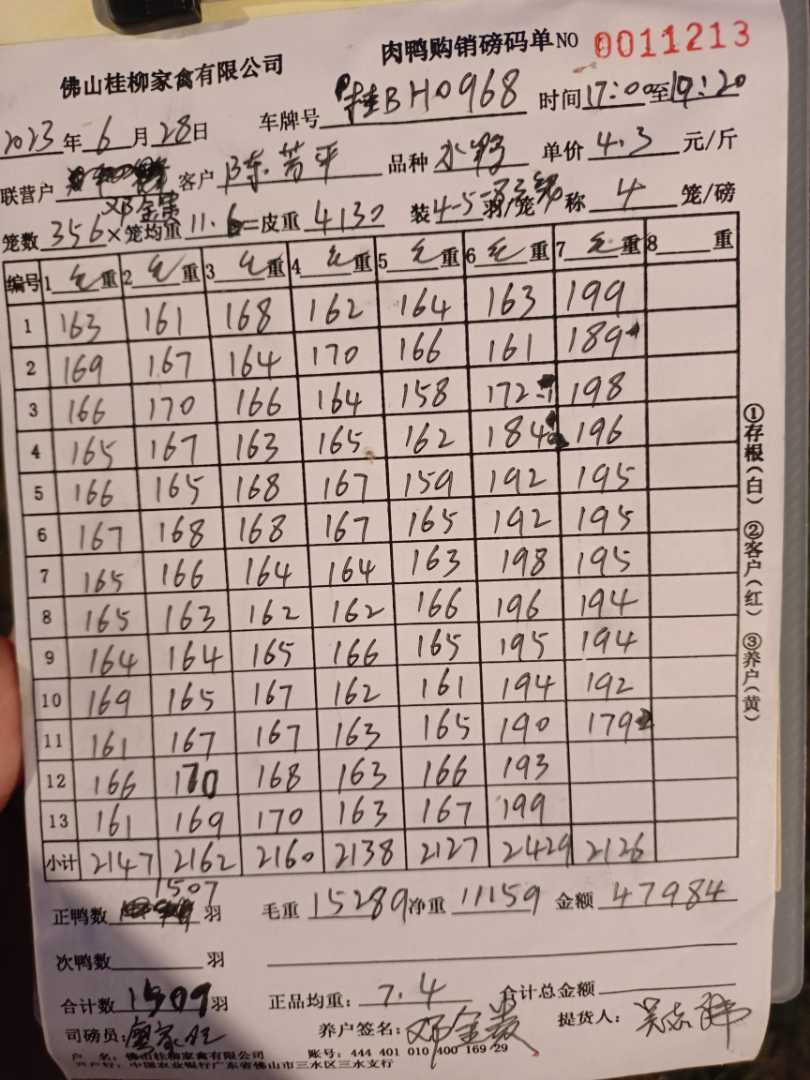 肉鸭购销磅码单 NO 0011213
佛山桂柳家禽有限公司
2023 年 6 月 28 日 车牌号 桂BH0968 时间 17:00 至 19:20
联营户 邓金贵 客户 陈芳平 品种 水鸭 单价 4.3 元/斤
笼数 356 × 笼均重 11.6 = 皮重 4130 装 4-5 羽/笼 称 4 笼/磅
编号 1 毛 重 2 毛 重 3 毛 重 4 毛 重 5 毛 重 6 毛 重 7 毛 重 8 重
1 163 161 168 162 164 163 199
2 169 167 164 170 166 161 189
3 166 170 166 164 158 172 198
4 165 167 163 165 162 184 196
5 166 165 168 167 159 192 195
6 167 168 168 167 165 192 195
7 165 166 164 164 163 198 195
8 165 163 162 162 166 196 194
9 164 164 165 166 165 195 194
10 169 165 167 162 161 194 192
11 161 167 167 163 165 190 179
12 166 170 168 163 166 193
13 161 169 170 163 167 199
小计 2147 2162 2160 2138 2127 2429 2126
正鸭数 1507 羽 毛重 15289 净重 11159 金额 47984
次鸭数 羽
合计数 1509 羽 正品均重: 7.4 合计总金额
司磅员: 养户签名: 邓金贵 提货人:
户 名: 佛山桂柳家禽有限公司 账号: 444 401 010 400 169 29
开户行: 中国农业银行广东省佛山市三水区三水支行
①存根(白) ②客户(红) ③养户(黄)